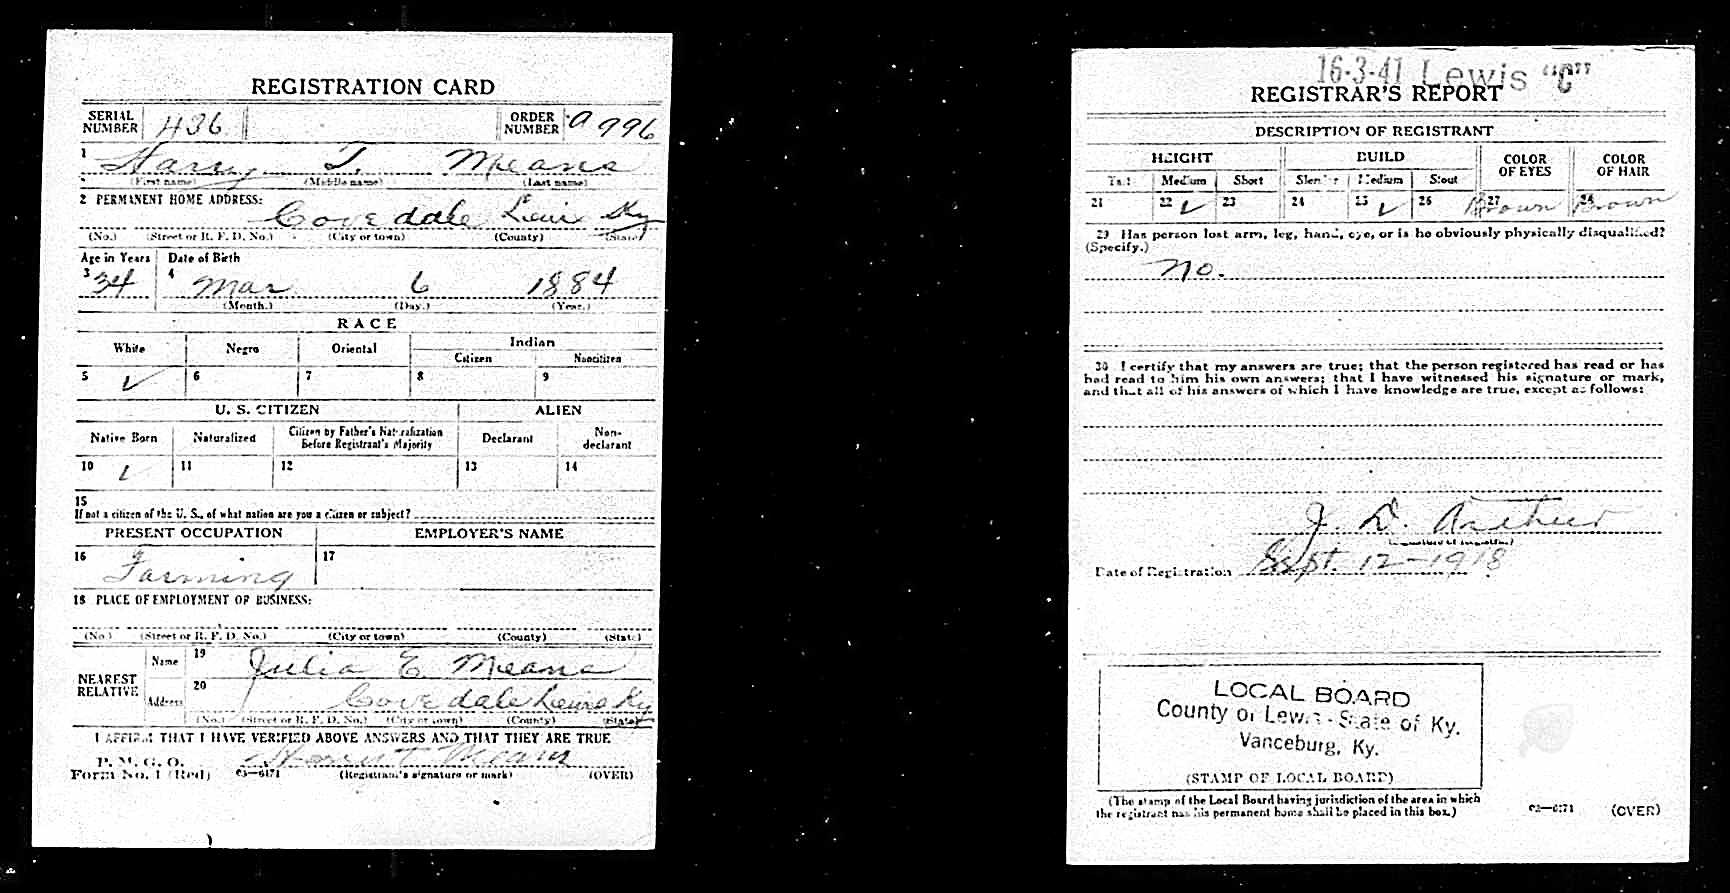 REGISTRATION CARD
SERIAL NUMBER 436 ORDER NUMBER a 996
1 Harry T. Means
(First name) (Middle name) (Last name)
2 PERMANENT HOME ADDRESS:
Covedale Lewis Ky
(No.) (Street or R. F. D. No.) (City or town) (County) (State)
Age in Years Date of Birth
3 34 4 Mar 6 1884
(Month.) (Day.) (Year.)
RACE
White Negro Oriental Indian
Citizen Noncitizen
5 ✓ 6 7 8 9
U. S. CITIZEN ALIEN
Native Born Naturalized Citizen by Father's Naturalization Before Registrant's Majority Declarant Non-declarant
10 ✓ 11 12 13 14
15
If not a citizen of the U. S., of what nation are you a citizen or subject?
PRESENT OCCUPATION EMPLOYER'S NAME
16 Farming 17
18 PLACE OF EMPLOYMENT OR BUSINESS:
(No.) (Street or R. F. D. No.) (City or town) (County) (State)
NEAREST RELATIVE Name 19 Julia E Means
Address 20 Covedale Lewis Ky
(No.) (Street or R. F. D. No.) (City or town) (County) (State)
I AFFIRM THAT I HAVE VERIFIED ABOVE ANSWERS AND THAT THEY ARE TRUE
P. M. G. O.
Form No. 1 (Red) 03—6171 (Registrant's signature or mark) (OVER)
Means
16-3-41 Lewis "C"
REGISTRAR'S REPORT
DESCRIPTION OF REGISTRANT
HEIGHT BUILD COLOR OF EYES COLOR OF HAIR
Tall Medium Short Slender Medium Stout
21 22 ✓ 23 24 25 ✓ 26 27 Brown 28 Brown
29 Has person lost arm, leg, hand, eye, or is he obviously physically disqualified?
(Specify.)
No.
30 I certify that my answers are true; that the person registered has read or has
had read to him his own answers; that I have witnessed his signature or mark,
and that all of his answers of which I have knowledge are true, except as follows:
J. D. Arthur
(Signature of Registrar)
Date of Registration Sept. 12-1918
LOCAL BOARD
County of Lewis - State of Ky.
Vanceburg, Ky.
(STAMP OF LOCAL BOARD)
(The stamp of the Local Board having jurisdiction of the area in which
the registrant has his permanent home shall be placed in this box.)
03—6171 (OVER)